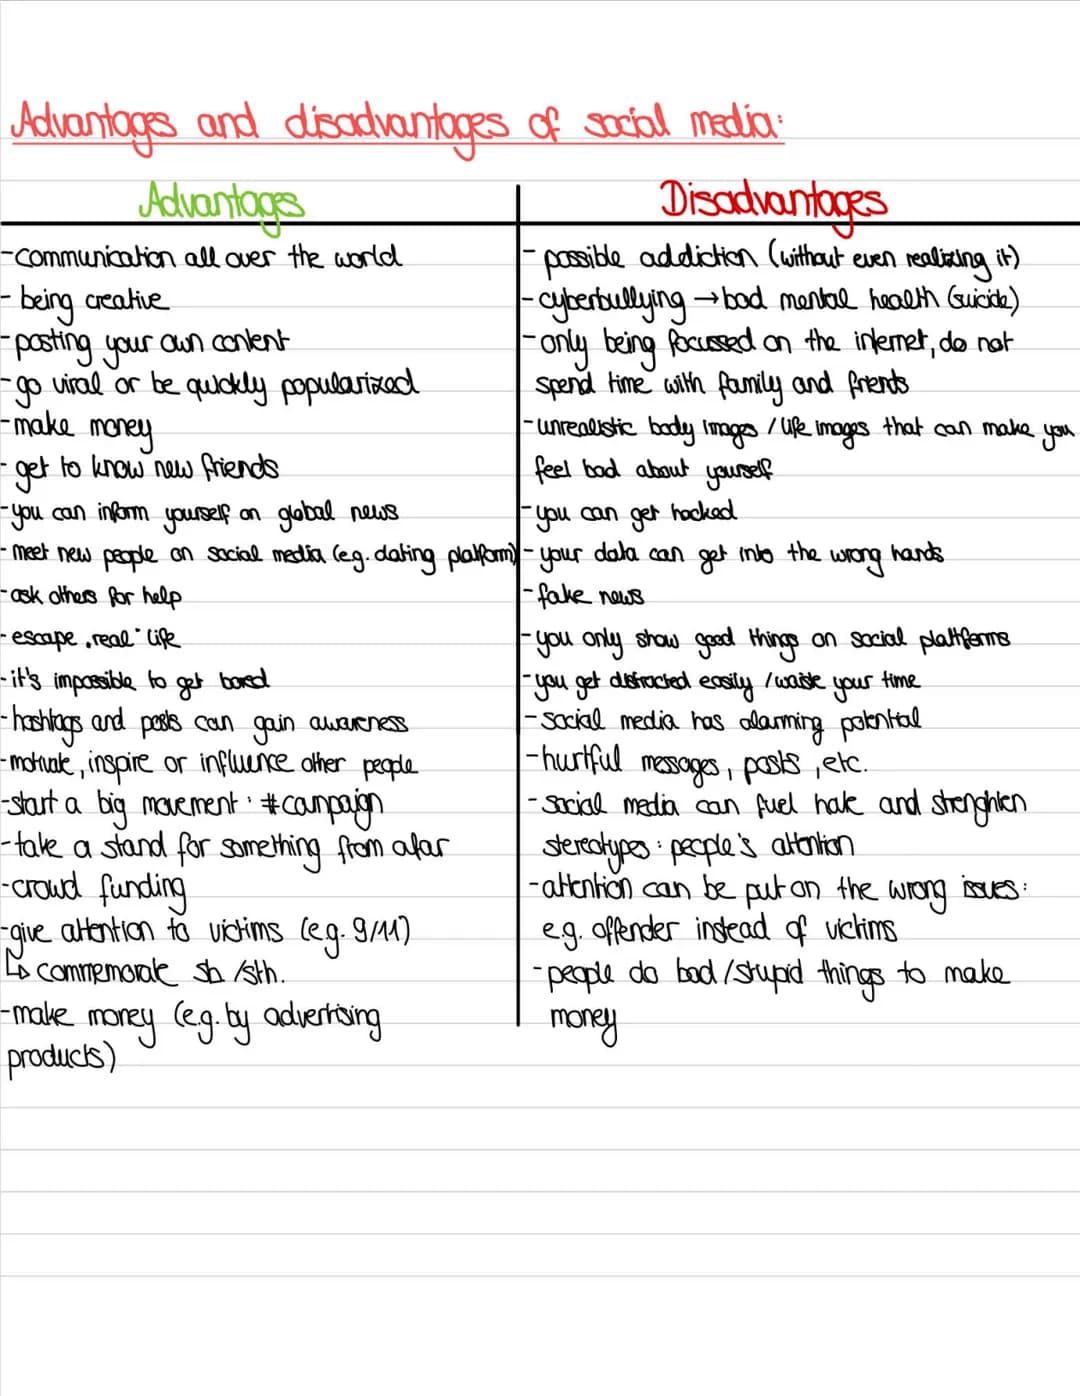 Advantages and disadvantages of social media:
Advantages
-communication all over the world
- being creative
-posting your own content
-go viral or be quickly popularized
-make money
- get to know new friends
-you can inform yourself on global news
-meet new people on social media (e.g. dating platform)
-ask others for help
-escape „real“ life
-it's impossible to get bored
-hashtags and posts can gain awareness
-motivate, inspire or influence other people
-start a big movement: #campaign
-take a stand for something from afar
-crowd funding
-give attention to victims (e.g. 9/11)
↳ commemorate sb./sth.
-make money (e.g. by advertising
products)
Disadvantages
- possible addiction (without even realizing it)
-cyberbullying →bad mental health (suicide)
-only being focussed on the internet, do not
spend time with family and friends
-unrealistic body images / life images that can make you
feel bad about yourself
-you can get hacked
-your data can get into the wrong hands
-fake news
-you only show good things on social plattforms
-you get distracted easily / waste your time
-social media has alarming potential
-hurtful messages, posts, etc.
-social media can fuel hate and strenghten
stereotypes: people's attention
-attention can be put on the wrong issues:
e.g. offender instead of victims
-people do bad/stupid things to make
money